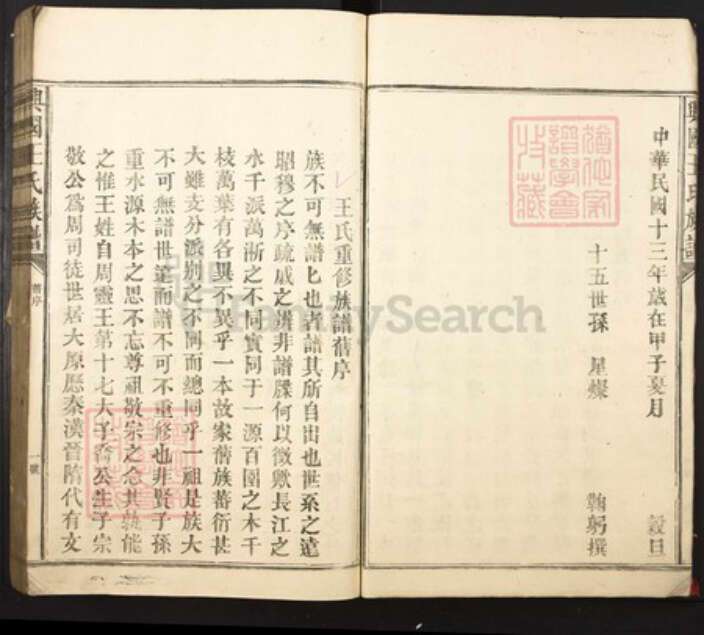 興國王氏族譜
中華民國十三年歲在甲子夏月 穀旦
十五世孫 星燦 鞠躬撰
王氏重修族譜舊序
族不可無譜匕也者譜其所自出也世系之遠
昭穆之序疏戚之辨非譜牒何以徵歟長江之
水千派萬漸之不同實同于一源百圍之木千
枝萬葉有各異不異乎一本故家舊族蕃衍甚
大雖支分派別之不同而總同乎一祖是族大
不可無譜世遠而譜不可不重修也非賢子孫
重水源木本之思不忘尊祖敬宗之念其孰能
之惟王姓自周靈王第十七大子喬公生子宗
敬公為周司徒世居大原歷秦漢晉隋代有文
興國王氏族譜
舊序
一號
FamilySearch